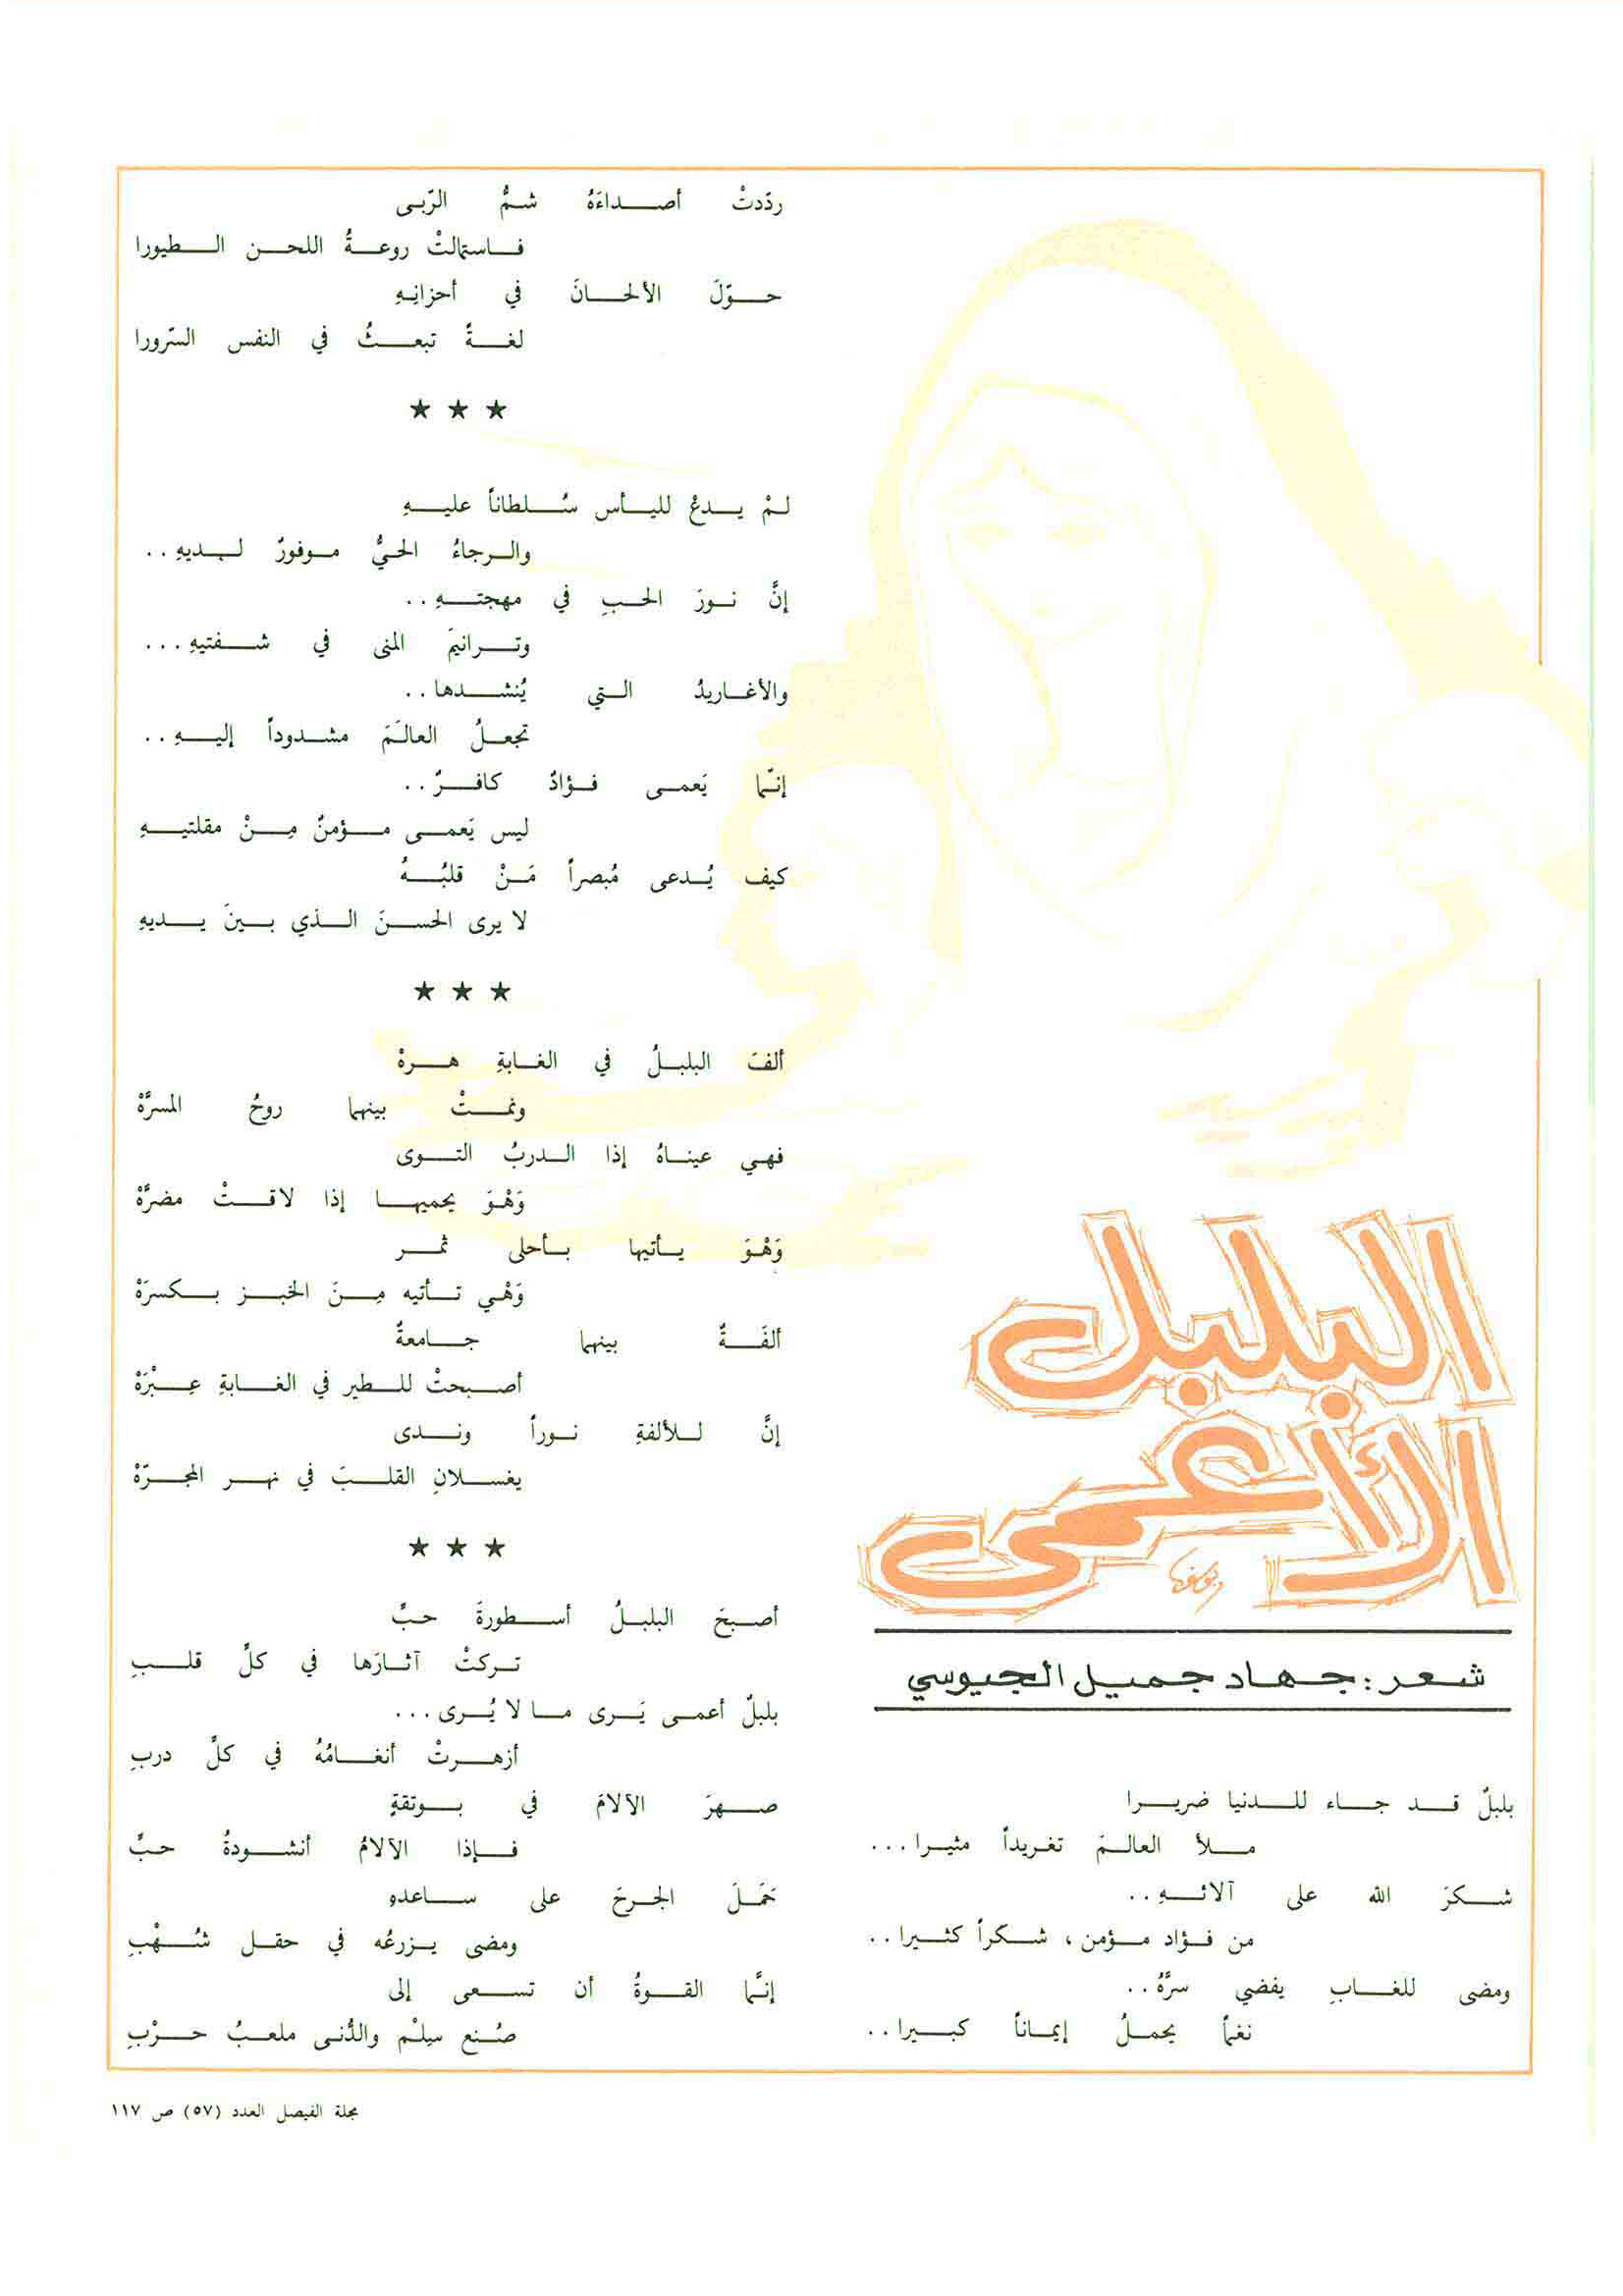 البلبل
الأعمى
شعر : جهاد جميل الجيوسي
بلبلٌ قد جاء للدنيا ضريرا
ملأ العالمَ تغريداً مثيرا ...
شكرَ الله على آلائهِ ..
من فؤاد مؤمن ، شكراً كثيرا ..
ومضى للغابِ يفضي سرَّهُ ..
نغماً يحملُ إيماناً كبيرا ..
ردّدتْ أصداءَهُ شمُّ الرّبى
فاستمالتْ روعةُ اللحن الطيورا
حوّلَ الألحانَ في أحزانِهِ
لغةً تبعثُ في النفس السّرورا
★ ★ ★
لمْ يدعْ لليأس سُلطاناً عليهِ
والرجاءُ الحيُّ موفورٌ لديهِ ..
إنَّ نورَ الحبِ في مهجتهِ ..
وترانيمَ المنى في شفتيهِ ...
والأغاريدُ التي يُنشدها ..
تجعلُ العالَمَ مشدوداً إليهِ ..
إنّما يَعمى فؤادٌ كافرٌ ..
ليس يَعمى مؤمنٌ مِنْ مقلتيهِ
كيف يُدعى مُبصراً مَنْ قلبُهُ
لا يرى الحسنَ الذي بينَ يديهِ
★ ★ ★
ألفَ البلبلُ في الغابةِ هرهْ
ونمتْ بينهما روحُ المسرَّهْ
فهي عيناهُ إذا الدربُ التوى
وَهْوَ يحميها إذا لاقتْ مضرَّهْ
وَهْوَ يأتيها بأحلى ثمر
وَهْي تأتيه مِنَ الخبز بكسرَهْ
ألفَةٌ بينهما جامعةٌ
أصبحتْ للطير في الغابةِ عِبْرَهْ
إنَّ للألفةِ نوراً وندى
يغسلانِ القلبَ في نهر المجرّهْ
★ ★ ★
أصبحَ البلبلُ أسطورةَ حبِّ
تركتْ آثارَها في كلِّ قلبِ
بلبلٌ أعمى يَرى ما لا يُرى ...
أزهرتْ أنغامُهُ في كلِّ دربِ
صهرَ الآلامَ في بوتقةٍ
فإذا الآلامُ أنشودةُ حبِّ
حَمَلَ الجرحَ على ساعدهِ
ومضى يزرعُه في حقل شُهْبِ
إنَّما القوةُ أن تسعى إلى
صُنع سِلْم والدُّنى ملعبُ حرْبِ
مجلة الفيصل العدد (٥٧) ص ١١٧